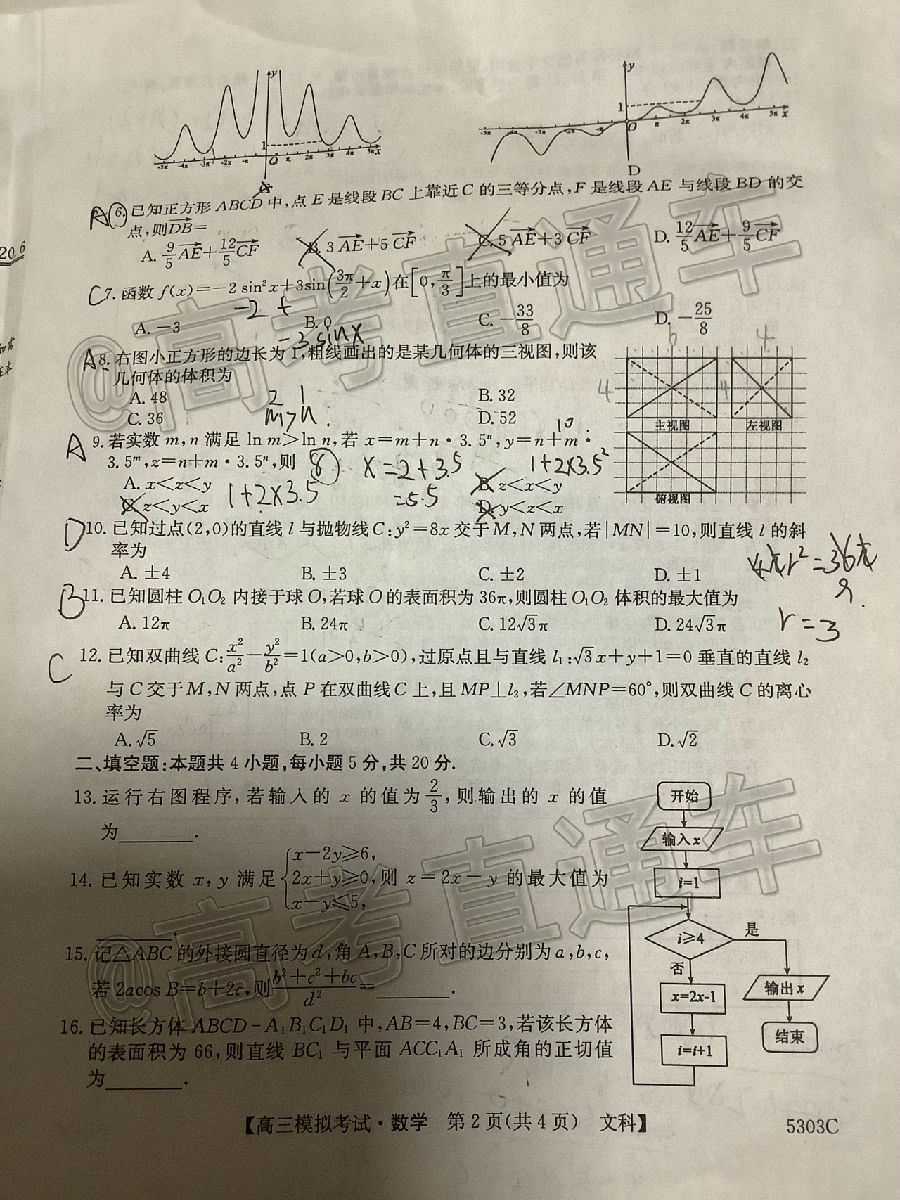 D
A 6. 已知正方形 ABCD 中,点 E 是线段 BC 上靠近 C 的三等分点,F 是线段 AE 与线段 BD 的交
点,则DB=
A. 9/5 AE+12/5 CF B. 3 AE+5 CF C. 5 AE+3 CF D. 12/5 AE+9/5 CF
C 7. 函数 f(x)=-2 sin²x+3sin(3π/2+x)在[0,π/3]上的最小值为
-2 +
A. -3 B. 0 C. -33/8 D. -25/8
-3 sinx
A 8. 右图小正方形的边长为 1,粗线画出的是某几何体的三视图,则该
几何体的体积为
A. 48 B. 32
C. 36 D. 52
2 1
m>n
6 4
4 4
主视图 左视图
俯视图
A 9. 若实数 m,n 满足 ln m>ln n,若 x=m+n·3.5ⁿ,y=n+m·
3.5ᵐ,z=n+m·3.5ⁿ,则
8 x=2+3.5 1+2×3.5²
A. x<z<y B. z<x<y
1+2×3.5 =5.5
C. z<y<x D. y<z<x
D 10. 已知过点(2,0)的直线 l 与抛物线 C:y²=8x 交于 M,N 两点,若|MN|=10,则直线 l 的斜
率为
A. ±4 B. ±3 C. ±2 D. ±1
4πr²=36π
9
r=3
B 11. 已知圆柱 O₁O₂ 内接于球 O,若球 O 的表面积为 36π,则圆柱 O₁O₂ 体积的最大值为
A. 12π B. 24π C. 12√3π D. 24√3π
C 12. 已知双曲线 C:x²/a²-y²/b²=1(a>0,b>0),过原点且与直线 l₁:√3x+y+1=0 垂直的直线 l₂
与 C 交于 M,N 两点,点 P 在双曲线 C 上,且 MP⊥l₂,若∠MNP=60°,则双曲线 C 的离心
率为
A. √5 B. 2 C. √3 D. √2
二、填空题:本题共 4 小题,每小题 5 分,共 20 分.
13. 运行右图程序,若输入的 x 的值为2/3,则输出的 x 的值
为________.
14. 已知实数 x,y 满足{x-2y≥6, 2x+y≥0, x-y≤5,则 z=2x-y 的最大值为
________.
15. 记△ABC 的外接圆直径为 d,角 A,B,C 所对的边分别为 a,b,c,
若 2acos B=b+2c,则(b²+c²+bc)/d²=________.
16. 已知长方体 ABCD-A₁B₁C₁D₁ 中,AB=4,BC=3,若该长方体
的表面积为 66,则直线 BC₁ 与平面 ACC₁A₁ 所成角的正切值
为________.
开始
输入x
i=1
i≥4
是
否
x=2x-1
输出x
i=i+1
结束
【高三模拟考试·数学 第 2 页(共 4 页) 文科】
5303C
@高考直通车
@高考直通车